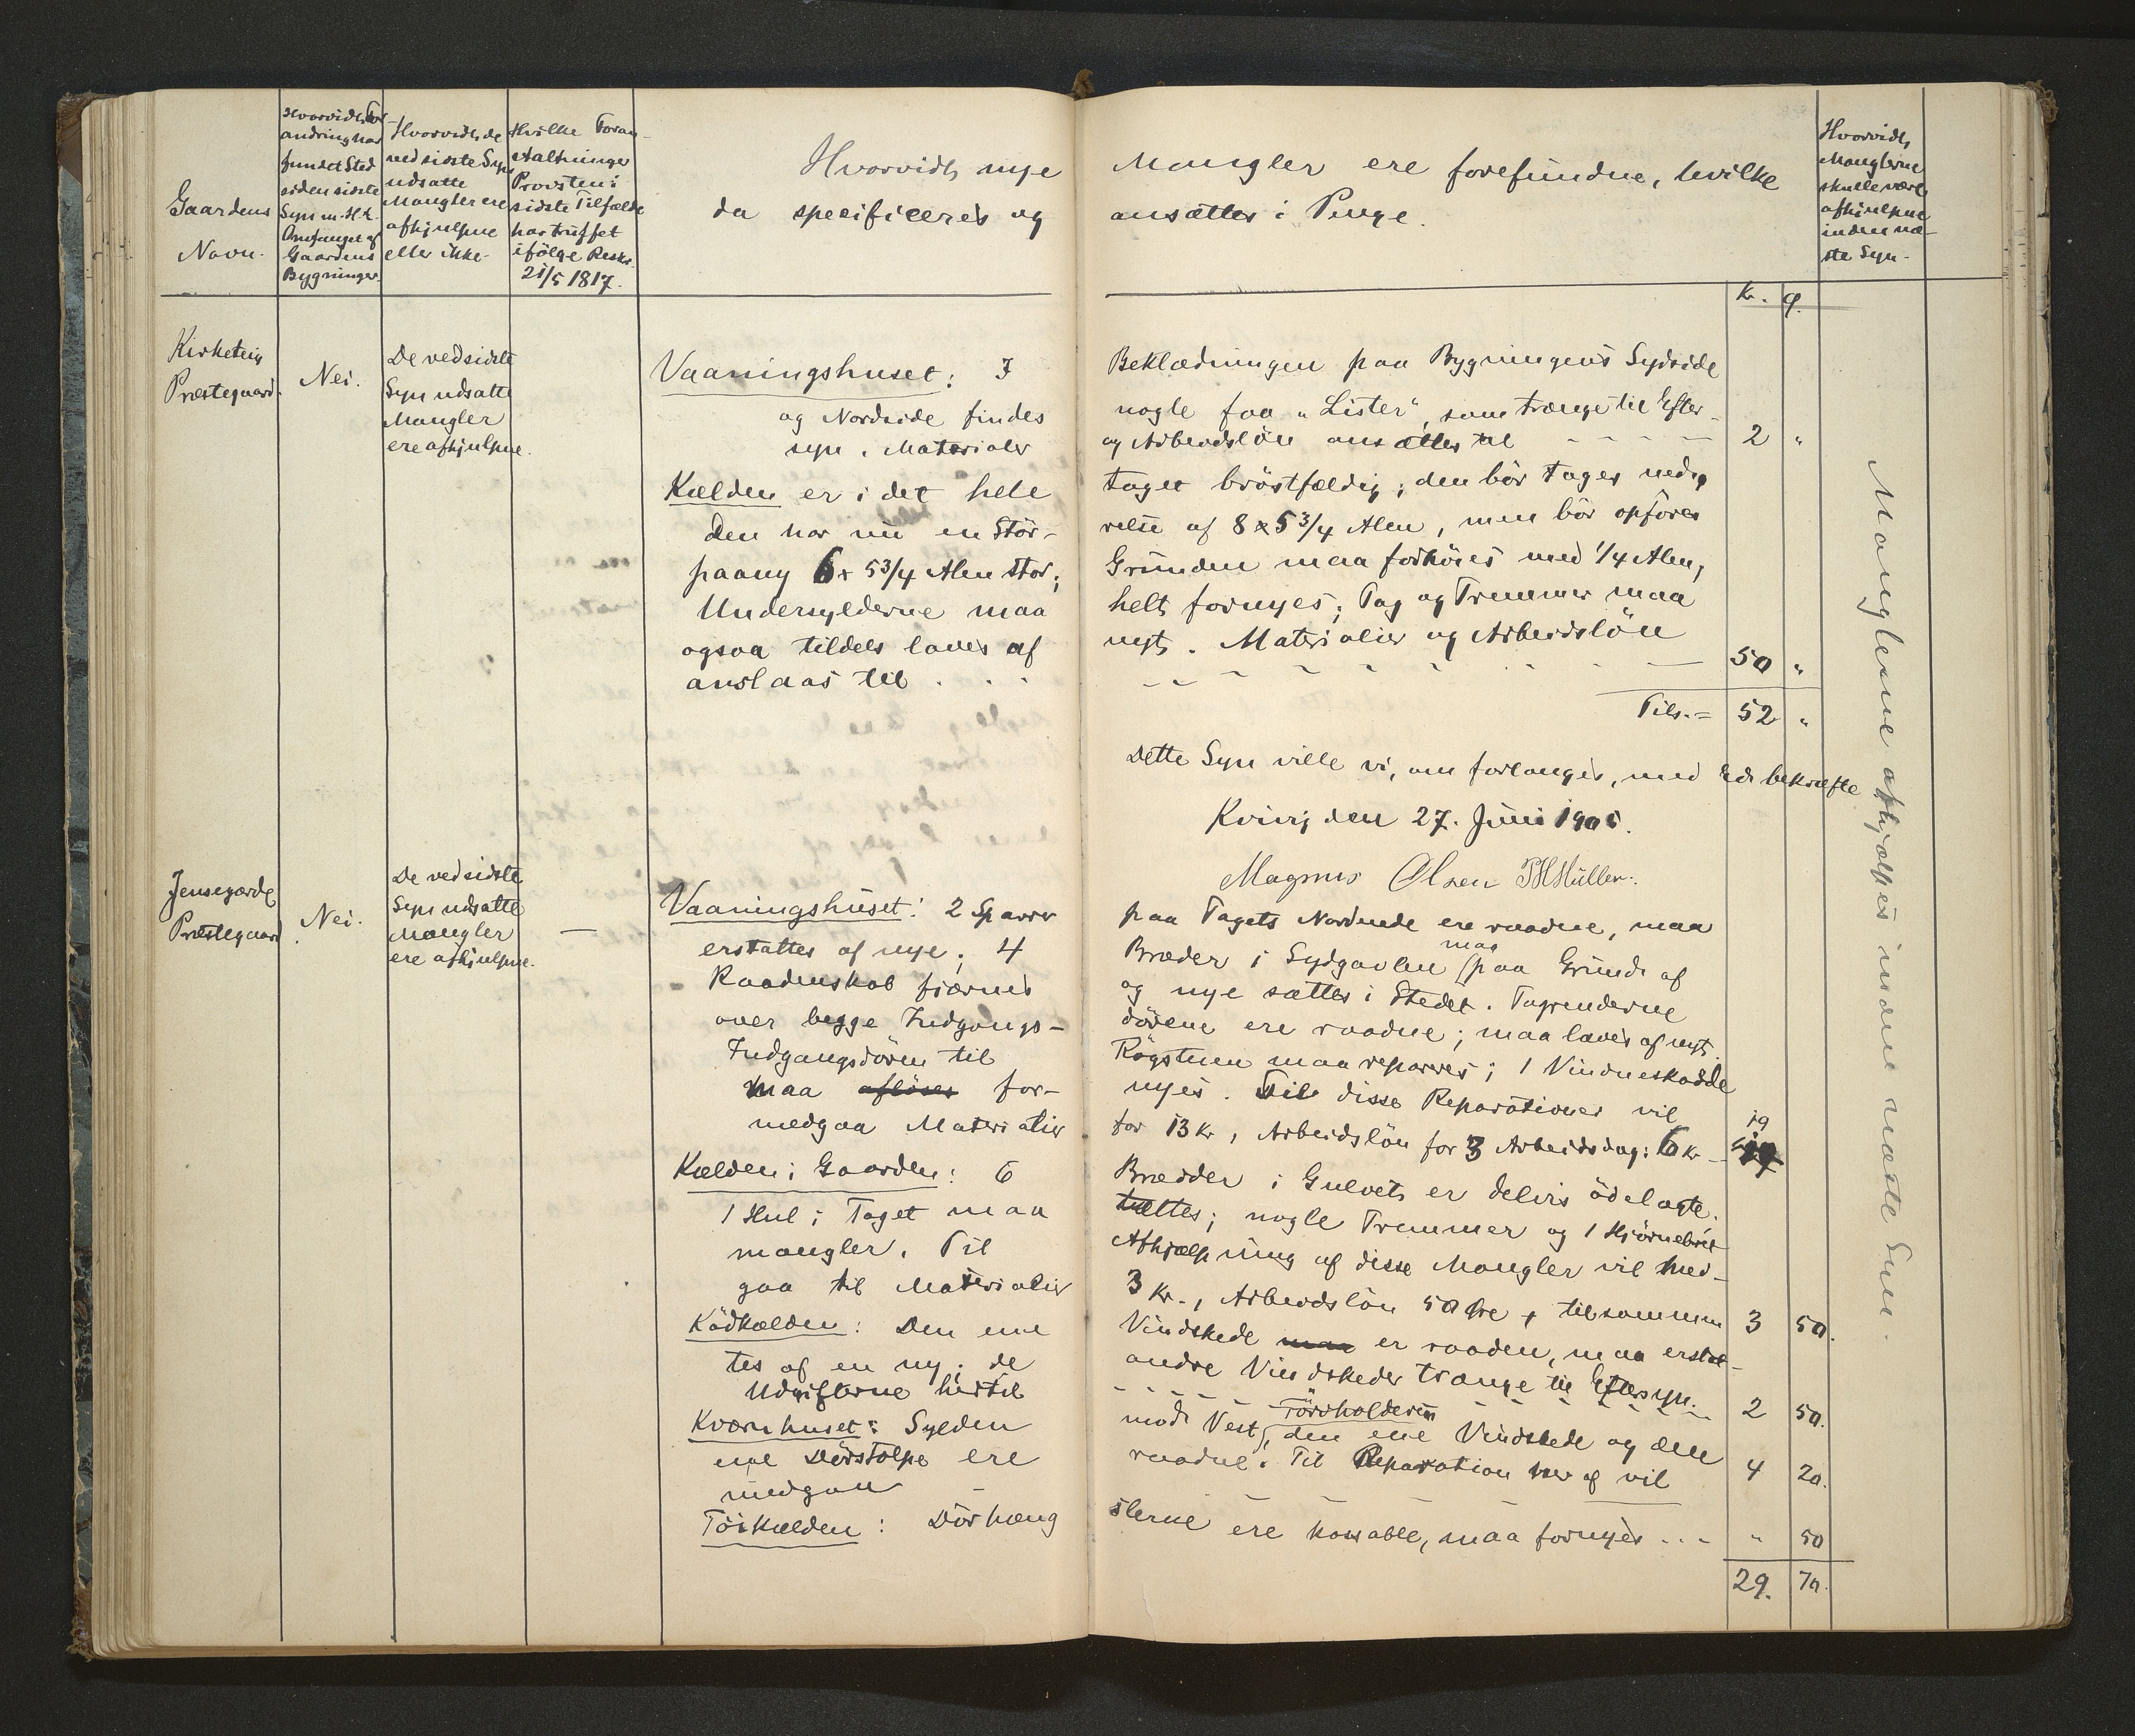 Gaardens
Navn.
Hvorvidt For-
andring har
fundet Sted
siden sidste
Syn m. H. t.
Omfanget af
Gaardens
Bygninger.
Hvorvidt de
ved sidste Syn
udsatte
Mangler ere
afhjulpne
eller ikke.
Hvilke Foran-
staltninger
Provsten i
sidste Tilfælde
har truffet
ifölge Reskr.
21/5 1817.
Hvorvidt nye Mangler ere forefundne, hvilke
da specificeres og ansættes i Penge.
Hvorvidt
Manglerne
skulle være
afhjulpne
inden næ-
ste Syn.
Kr. Ø.
Kirketeig
Præstegaard.
Nei.
De ved sidste
Syn udsatte
Mangler
ere afhjulpne.
Vaaningshuset: I Beklædningen paa Bygningens Sydside
og Nordside findes nogle faa "Lister", som trænge til Efter-
syn. Materialer og Arbeidslön ansættes til - - - - - 2 "
Kælden er i det hele taget bröstfældig; den bör tages ned,
den har nu en Stör- relse af 8 x 5 3/4 Alen, men bör opföres
paany 6 x 5 3/4 Alen stor; Grunden maa forhöies med 1/4 Alen,
Undersylderne maa helt fornyes; Tag og Tremmer maa
ogsaa tildels laves af nyt. Materialier og Arbeidslön
anslaas til . . . - - - - - - - - 50 "
Tils. = 52 "
Dette Syn ville vi, om forlanges, med Ed bekræfte
Kvivig den 27. Juni 1905.
Magnus Olsen PHMüller.
Jensegærde
Præstegaard
Nei.
De ved sidste
Syn udsatte
Mangler
ere afhjulpne.
—
Vaaningshuset: 2 Sparrer paa Tagets Nordende ere raadne, maa
erstattes af nye; 4 Bræder i Sydgavlen maa paa Grund af
Raadenskab fjærnes og nye sættes i Stedet. Tagrenderne
over begge Indgangs- dörene ere raadne; maa laves af nyt.
Indgangsdören til Rögstuen maa repareres; 1 Vindueskodde
maa aflöses for- nyes. Til disse Reparationer vil
medgaa Materialier for 13 Kr, Arbeidslön for 3 Arbeidsdag: 6 Kr — 19
Kælden i Gaarden: 6 Brædder i Gulvet er delvis ödelagte.
1 Hul i Taget maa tættes; nogle Tremmer og 1 Hjörnebræt
mangler. Til Afhjælpning af disse Mangler vil med-
gaa til Materialier 3 Kr., Arbeidslön 50 Öre, tilsammen 3 50.
Ködkælden: Den ene Vindskede maa er raaden, maa erstat-
tes af en ny; de andre Vindskeder trænge til Eftersyn.
Udgifterne hertil - - - - - - - - - - 2 50.
Kværnhuset: Sylden mod Vest, Törvholderen den ene Vindskede og den
ene Dörstolpe ere raadne. Til Reparation heraf vil
medgaa 4 20.
Töikælden: Dörhæng slerne ere kassable, maa fornyes . . - " 50
29. 70.
Manglerne afhjælpes inden næste Syn.